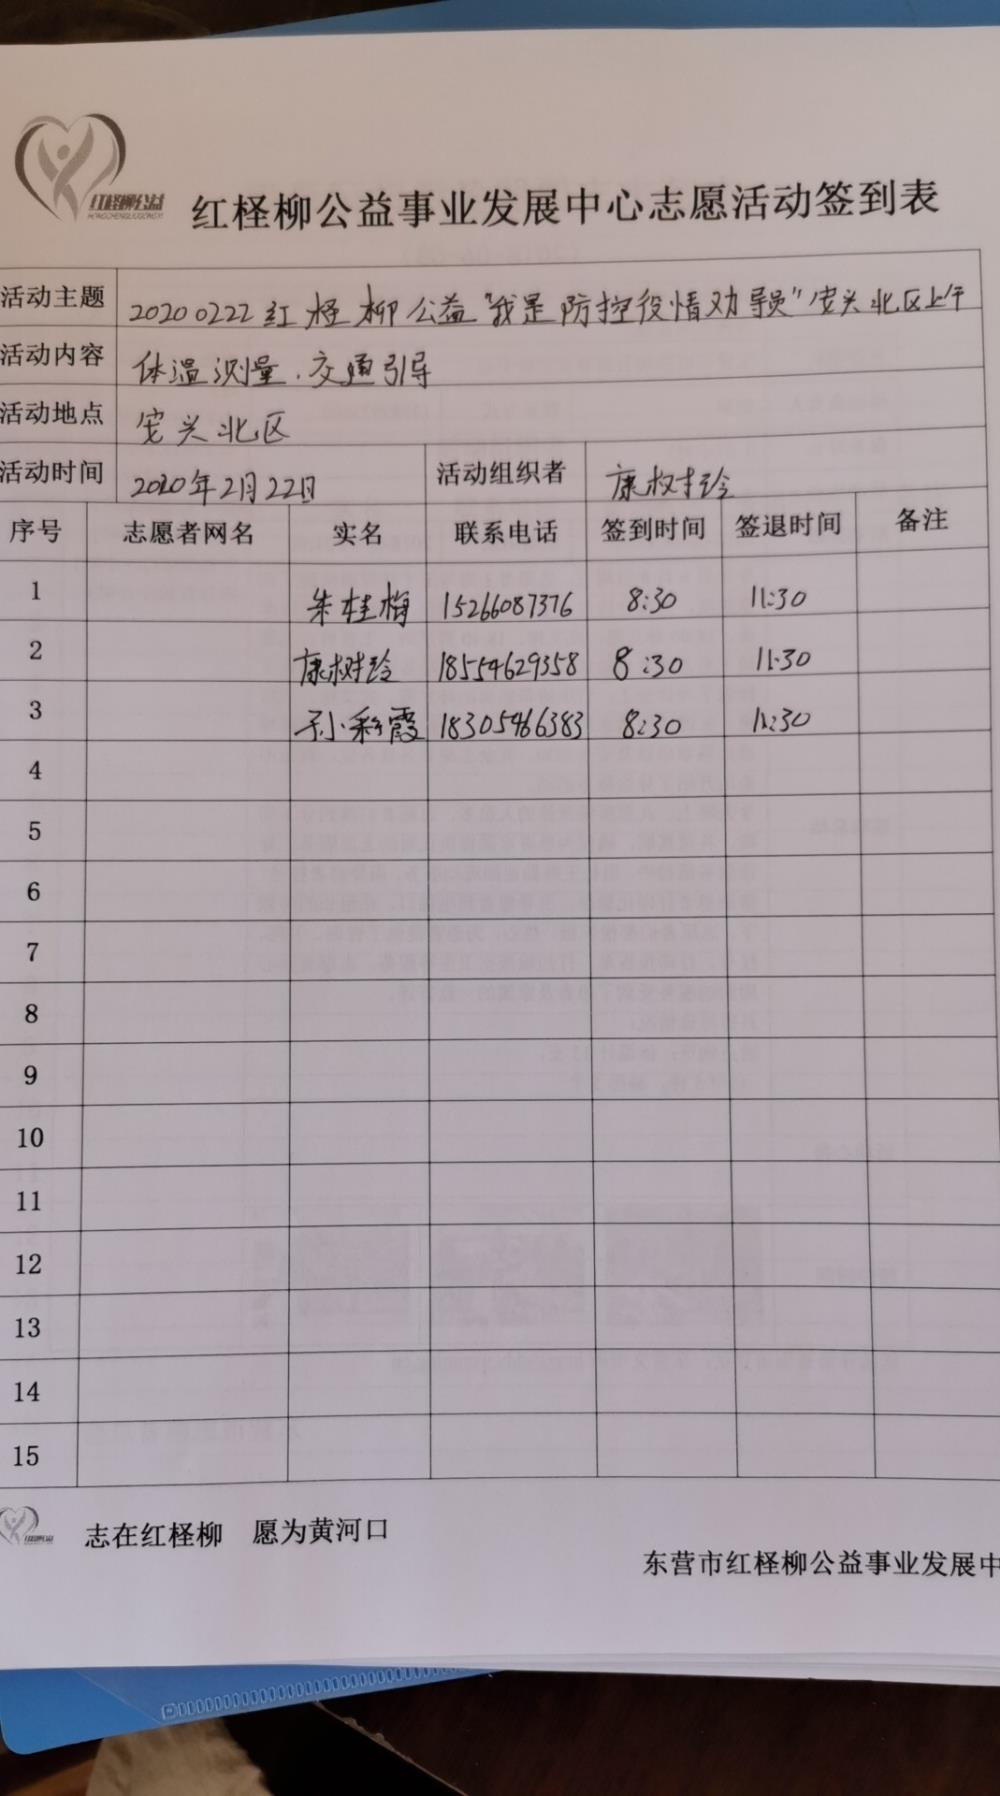 红柽柳公益
HONGCHENGLIUGONGYI
红柽柳公益事业发展中心志愿活动签到表
活动主题 20200222红柽柳公益"我是防控役情劝导员"安兴北区上午
活动内容 体温测量.交通引导
活动地点 安兴北区
活动时间 2020年2月22日 活动组织者 康树玲
序号 志愿者网名 实名 联系电话 签到时间 签退时间 备注
1 朱桂梅 15266087376 8:30 11:30
2 康树玲 18554629358 8:30 11:30
3 孙彩霞 18305466383 8:30 11:30
4
5
6
7
8
9
10
11
12
13
14
15
志在红柽柳 愿为黄河口
东营市红柽柳公益事业发展中